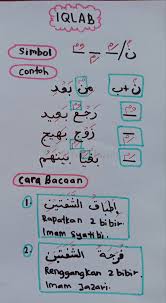 IQLAB
Simbol
نْ/ ـــ ـــ ـــ
Contoh
نْ+ب مِنْ بَعْد
ـــ رَجْعٌ بَعِيد
ـــ زَوْجٍ بَهِيج
ـــ بَغْيًا بَيْنَهُمْ
Cara Bacaan
1. إِطْبَاقُ الشَّفَتَيْنِ
Rapatkan 2 bibir.
Imam Syatibi.
2. فُرْجَةُ الشَّفَتَيْنِ
Renggangkan 2 bibir.
Imam Jazari.